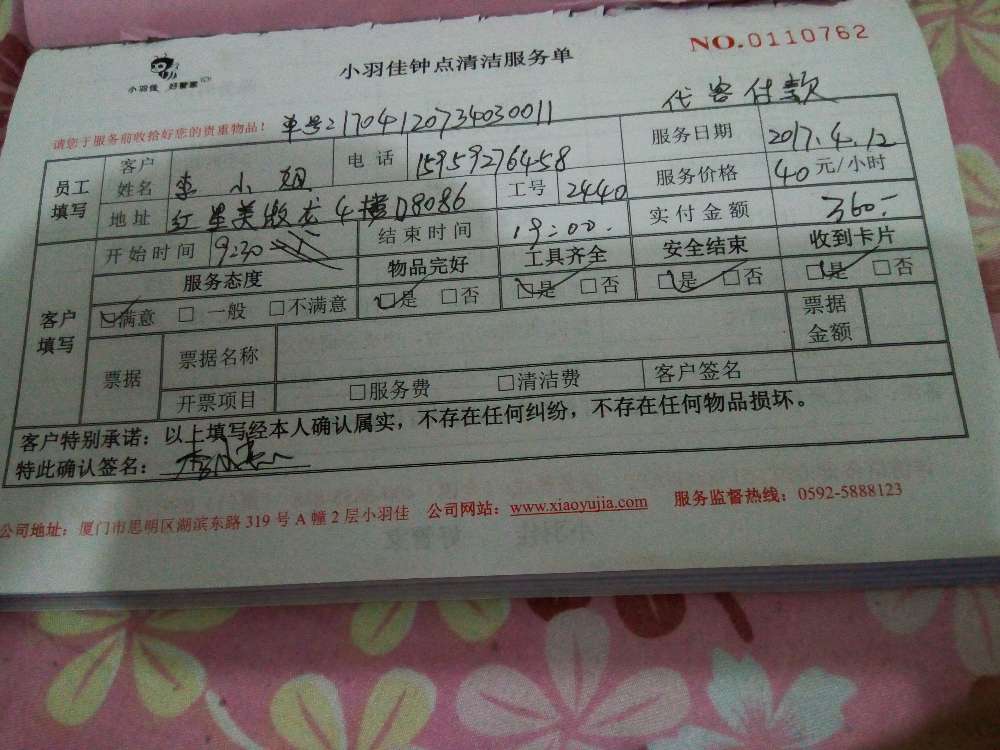 NO.0110762
小羽佳 好管家
小羽佳钟点清洁服务单
代客付款
请您于服务前收拾好您的贵重物品！ 单号:21704120734030011
员工填写 客户姓名 李小姐 电话 15959276458 服务日期 2017.4.12
地址 红星美凯龙4楼D8086 工号 2440 服务价格 40元/小时
开始时间 9:30 结束时间 19:00. 实付金额 360-
客户填写 服务态度 物品完好 工具齐全 安全结束 收到卡片
☑满意 □一般 □不满意 ☑是 □否 ☑是 □否 ☑是 □否 ☑是 □否
票据 票据名称 票据金额
开票项目 □服务费 □清洁费 客户签名
客户特别承诺：以上填写经本人确认属实，不存在任何纠纷，不存在任何物品损坏。
特此确认签名：
公司地址：厦门市思明区湖滨东路 319 号 A 幢 2 层小羽佳 公司网站：www.xiaoyujia.com 服务监督热线：0592-5888123